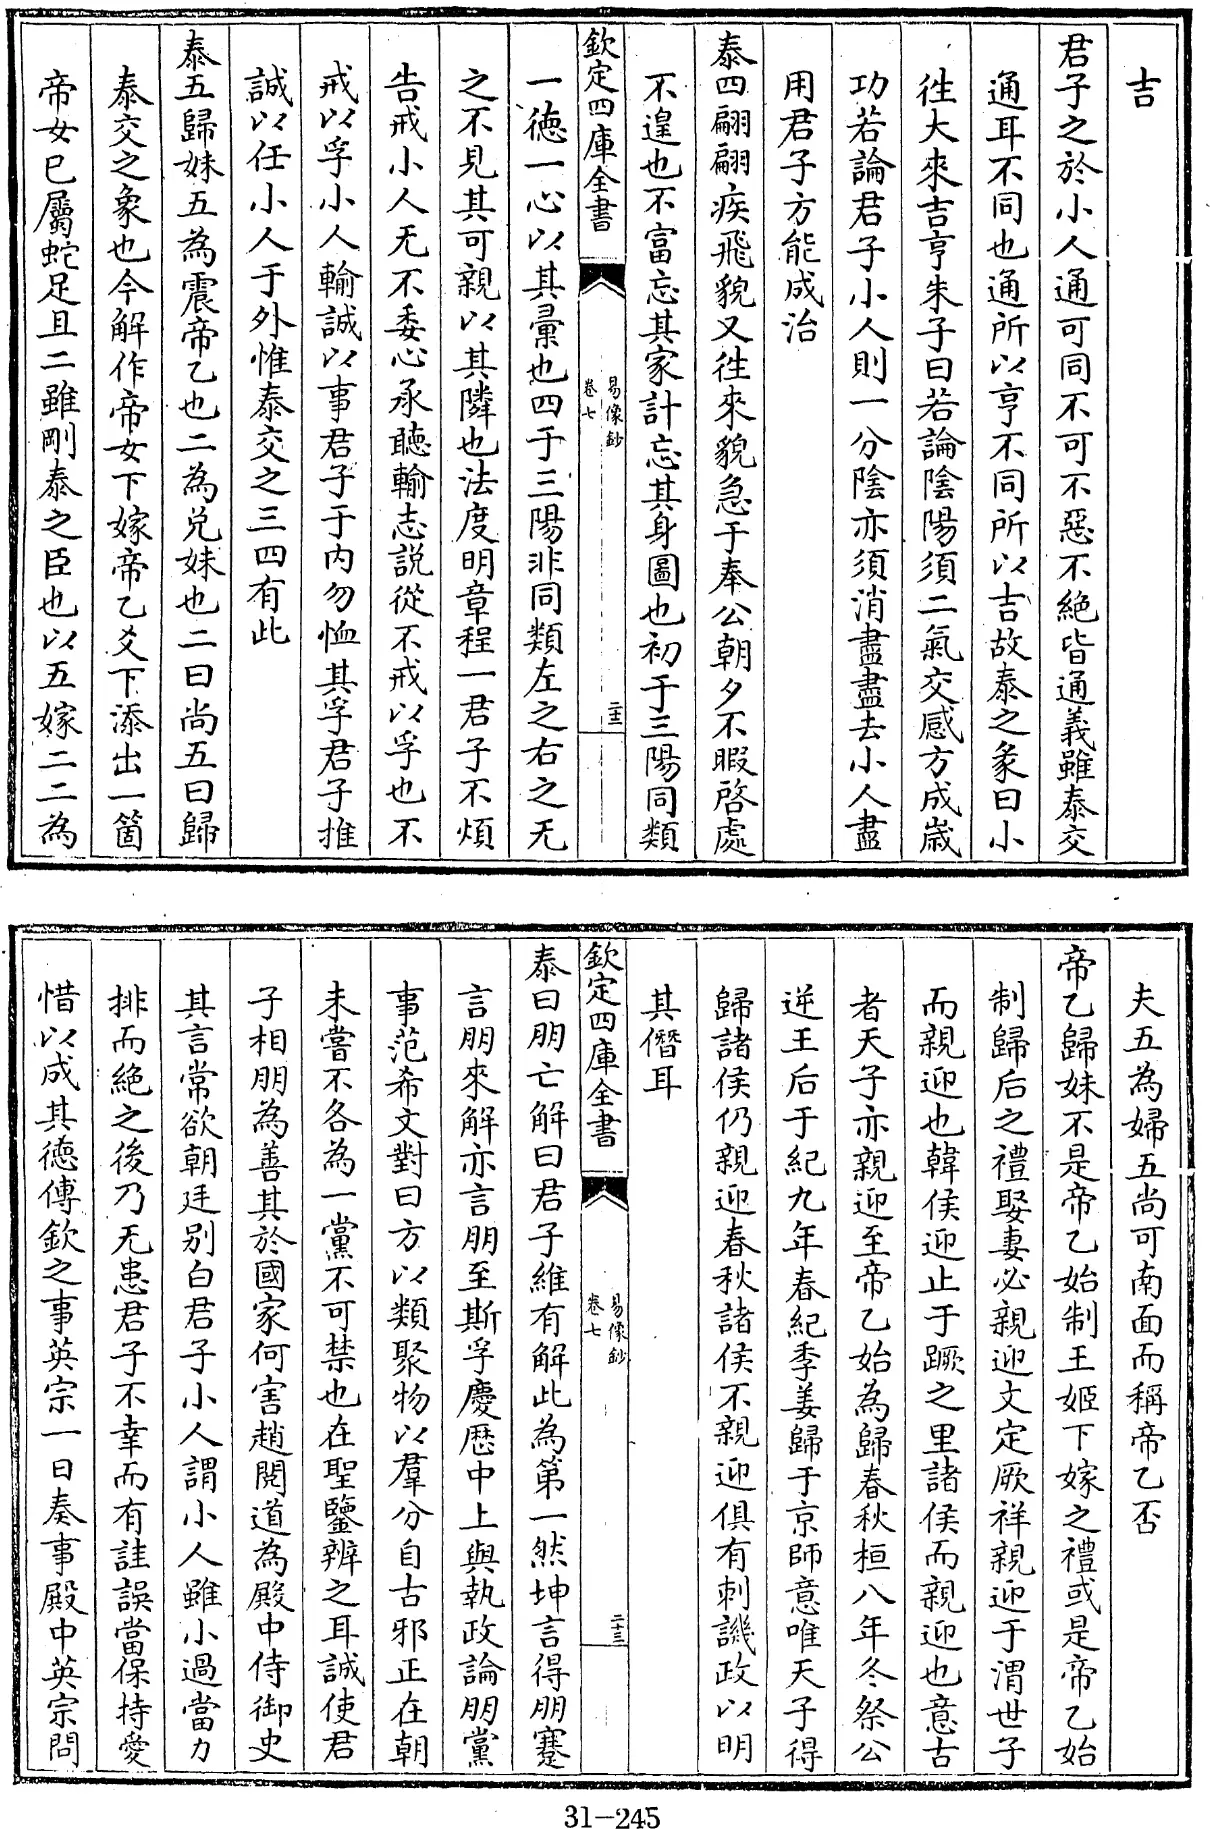 吉
君子之於小人通可同不可不惡不絶皆通義雖泰交
通耳不同也通所以亨不同所以吉故泰之彖曰小
徃大來吉亨朱子曰若論陰陽須二氣交感方成嵗
功若論君子小人則一分陰亦須消盡盡去小人盡
用君子方能成治
泰四翩翩疾飛貌又徃來貌急于奉公朝夕不暇啓處
不遑也不富忘其家計忘其身圖也初于三陽同類
欽定四庫全書
易像鈔
卷七
二十三
一徳一心以其彚也四于三陽非同類左之右之无
之不見其可親以其隣也法度明章程一君子不煩
告戒小人无不委心承聽輸志説從不戒以孚也不
戒以孚小人輸誠以事君子于内勿恤其孚君子推
誠以任小人于外惟泰交之三四有此
泰五歸妹五為震帝乙也二為兑妹也二曰尚五曰歸
泰交之象也今解作帝女下嫁帝乙爻下添出一箇
帝女已屬蛇足且二雖剛泰之臣也以五嫁二二為
夫五為婦五尚可南面而稱帝乙否
帝乙歸妹不是帝乙始制王姬下嫁之禮或是帝乙始
制歸后之禮娶妻必親迎文定厥祥親迎于渭世子
而親迎也韓侯迎止于蹶之里諸侯而親迎也意古
者天子亦親迎至帝乙始為歸春秋桓八年冬祭公
逆王后于紀九年春紀季姜歸于京師意唯天子得
歸諸侯仍親迎春秋諸侯不親迎俱有刺譏政以明
其僭耳
欽定四庫全書
易像鈔
卷七
二十三
泰曰朋亡解曰君子維有解此為第一然坤言得朋蹇
言朋來解亦言朋至斯孚慶厯中上與執政論朋黨
事范希文對曰方以類聚物以羣分自古邪正在朝
未嘗不各為一黨不可禁也在聖鑒辨之耳誠使君
子相朋為善其於國家何害趙閱道為殿中侍御史
其言常欲朝廷别白君子小人謂小人雖小過當力
排而絶之後乃无患君子不幸而有詿誤當保持愛
惜以成其徳傅欽之事英宗一日奏事殿中英宗問
31-245